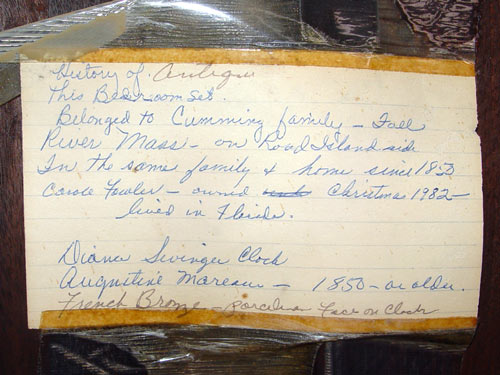 History of Antique
This Bedroom Set.
Belonged to Cumming family - Fall
River Mass - on Road Island side
In the same family & home since 1850
Carole Fowler - owned Christmas 1982 -
lived in Florida.
Diana Swinger Clock
Augustine Moreau - 1850 - or older.
French Bronze - Porcelain Face on Clock